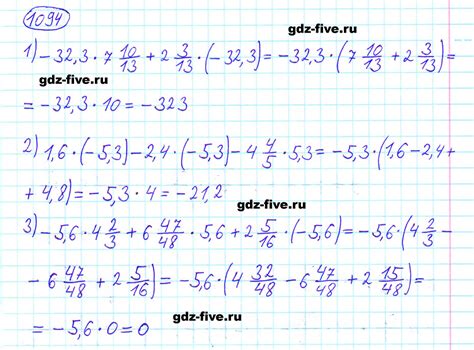 1094
gdz-five.ru
1) -32,3 · 7 10/13 + 2 3/13 · (-32,3) = -32,3 · (7 10/13 + 2 3/13) =
gdz-five.ru
= -32,3 · 10 = -323
gdz-five.ru
2) 1,6 · (-5,3) - 2,4 · (-5,3) - 4 4/5 · 5,3 = -5,3 · (1,6 - 2,4 +
+ 4,8) = -5,3 · 4 = -21,2
gdz-five.ru
3) -5,6 · 4 2/3 + 6 47/48 · 5,6 + 2 5/16 · (-5,6) = -5,6 · (4 2/3 -
- 6 47/48 + 2 5/16) = -5,6 · (4 32/48 - 6 47/48 + 2 15/48) =
= -5,6 · 0 = 0
gdz-five.ru